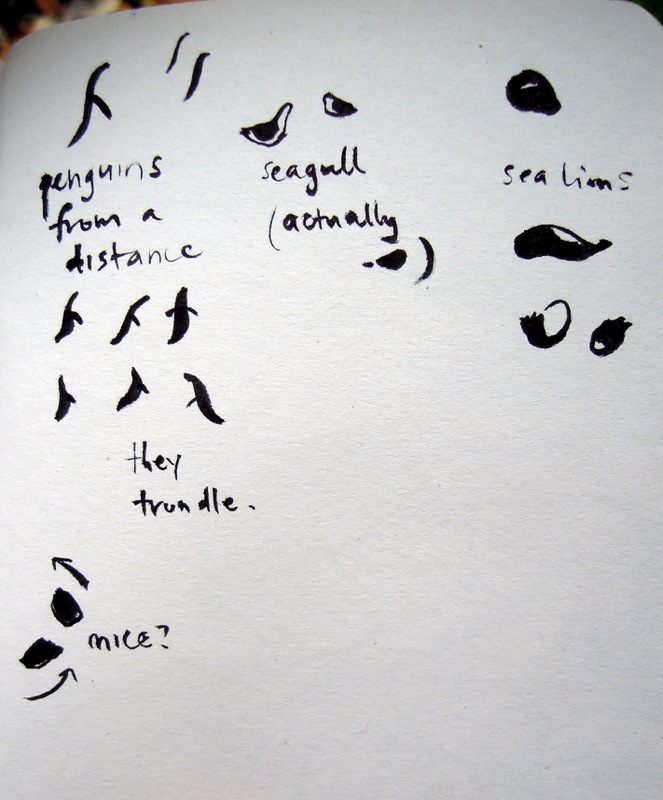 penguins
from a
distance
seagull
(actually
)
sea lions
they
trundle.
mice?